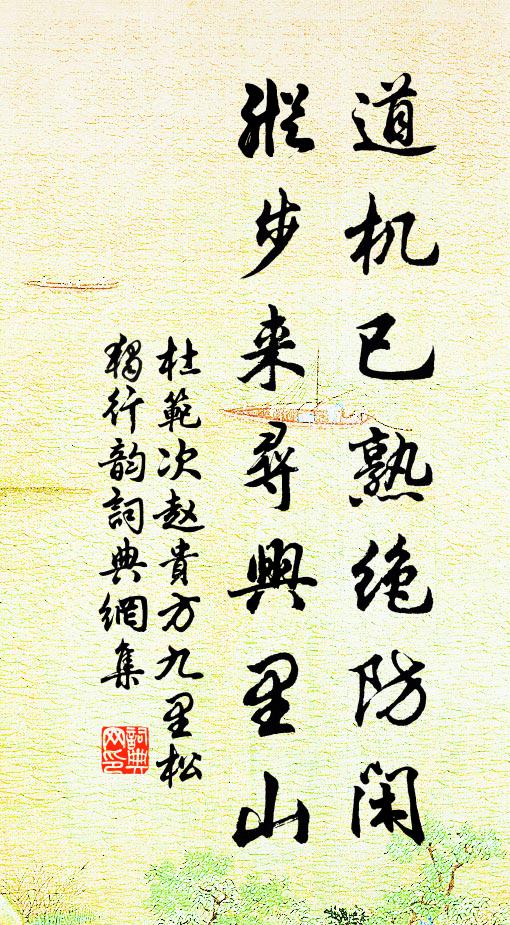 道机已熟绝防闲
纵步来寻兴里山
杜範次赵贵方九里松
独行韵词典網集
詞典网印